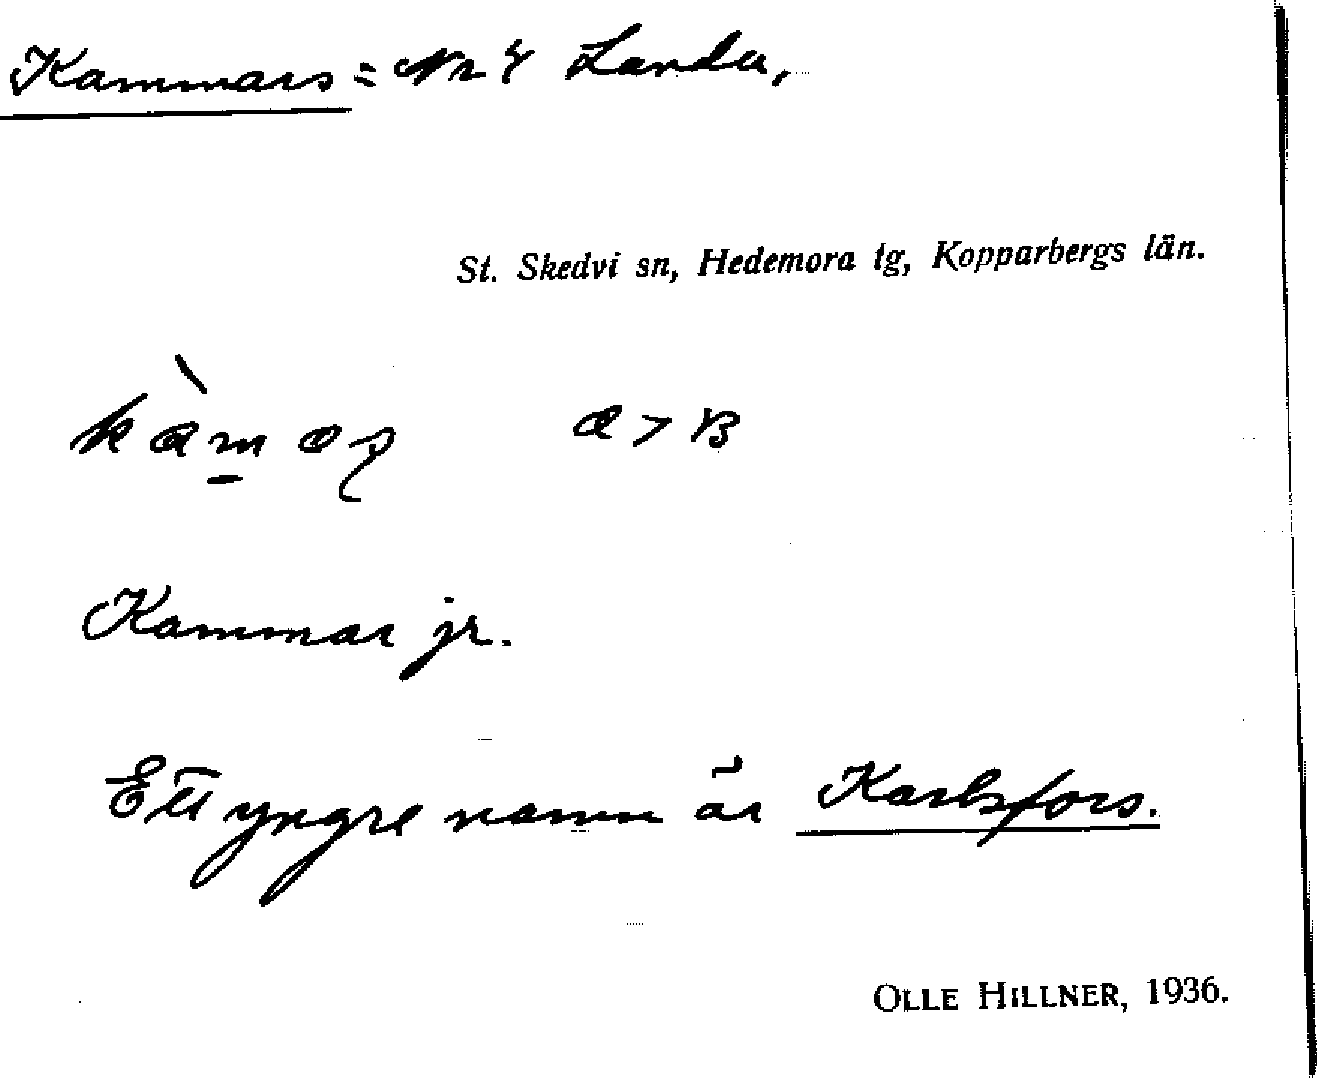 Kammars = Nr 8 Landa,
St. Skedvi sn, Hedemora tg, Kopparbergs län.
a > B
Kammar jr.
Ett yngre namn är Karlsfors.
OLLE HILLNER, 1936.